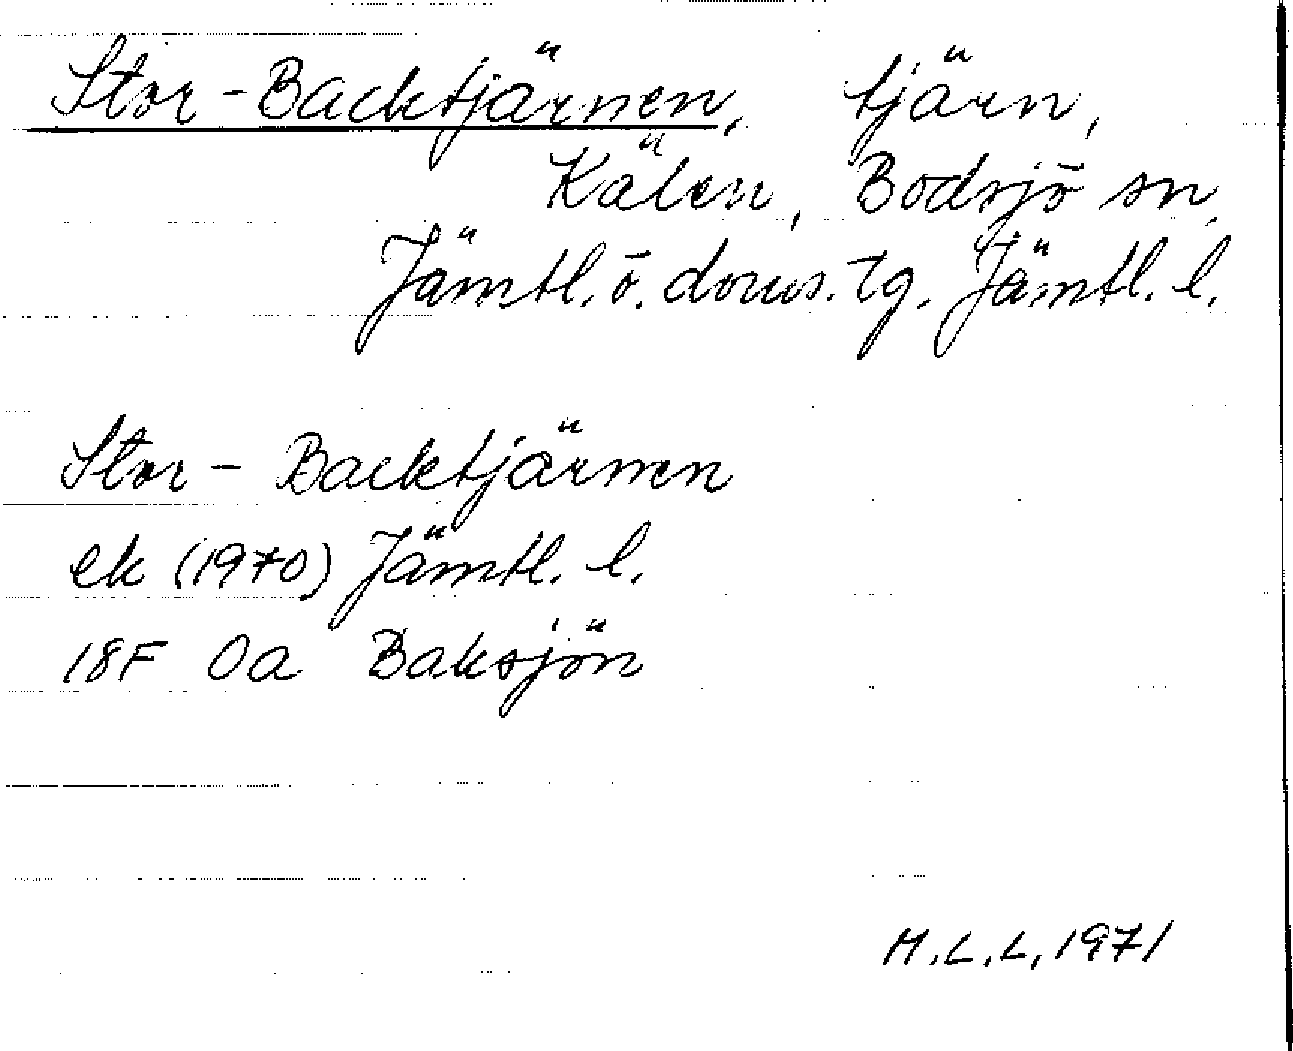 Stor-Backtjärnen, tjärn,
Kälen, Bodsjö sn,
Jämtl. ö. doms. tg. Jämtl. l.
Stor-Backtjärnen
ek (1970) Jämtl. l.
18F 0a Baksjön
M.L.L, 1971